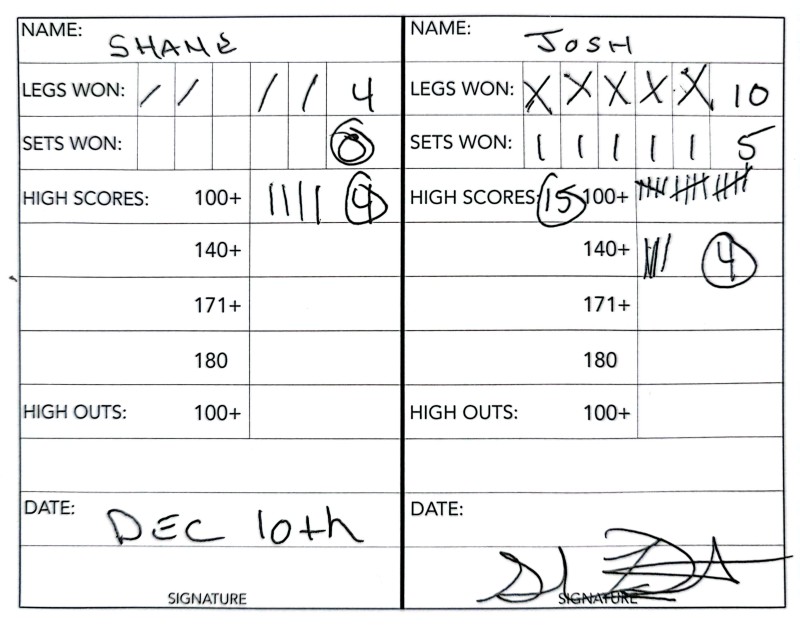 NAME: SHANE
LEGS WON: / / / / 4
SETS WON: 0
HIGH SCORES: 100+ |||| 4
140+
171+
180
HIGH OUTS: 100+
DATE: DEC 10th
SIGNATURE
NAME: JOSH
LEGS WON: X X X X X 10
SETS WON: 1 1 1 1 1 5
HIGH SCORES: 15 100+
140+ |||| 4
171+
180
HIGH OUTS: 100+
DATE:
SIGNATURE